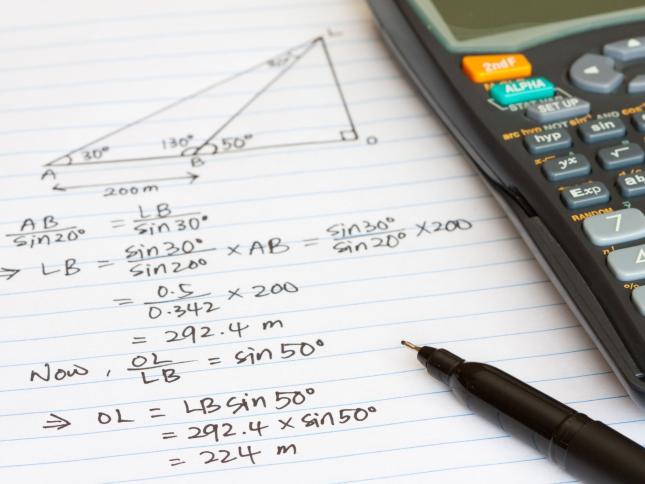 L
20°
30° 130° 50°
A B O
200m
AB/sin20° = LB/sin30°
⇒ LB = sin30°/sin20° × AB = sin30°/sin20° × 200
= 0.5/0.342 × 200
= 292.4 m
Now, OL/LB = sin 50°
⇒ OL = LB sin 50°
= 292.4 × sin 50°
= 224 m
2ndF
ALPHA
STAT VAR
SET UP
arc hyp NOT sin⁻¹ AND cos
hyp sin
yˣ √
Exp ab
RANDOM
7
4